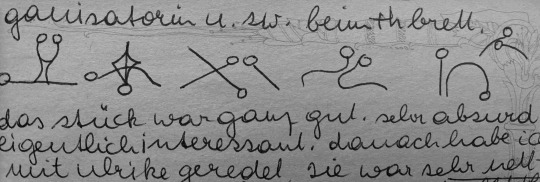 ganisatorin u. sw. beim thbrett.
das stück war ganz gut. sehr absurd
eigentlich interessant. danach habe ic
mit ulrike geredet, sie war sehr nett